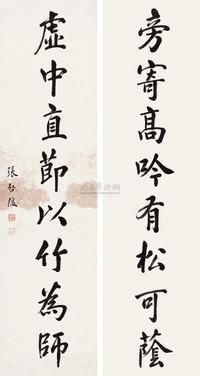 旁寄高吟有松可蔭
虛中直節以竹為師
張啓後